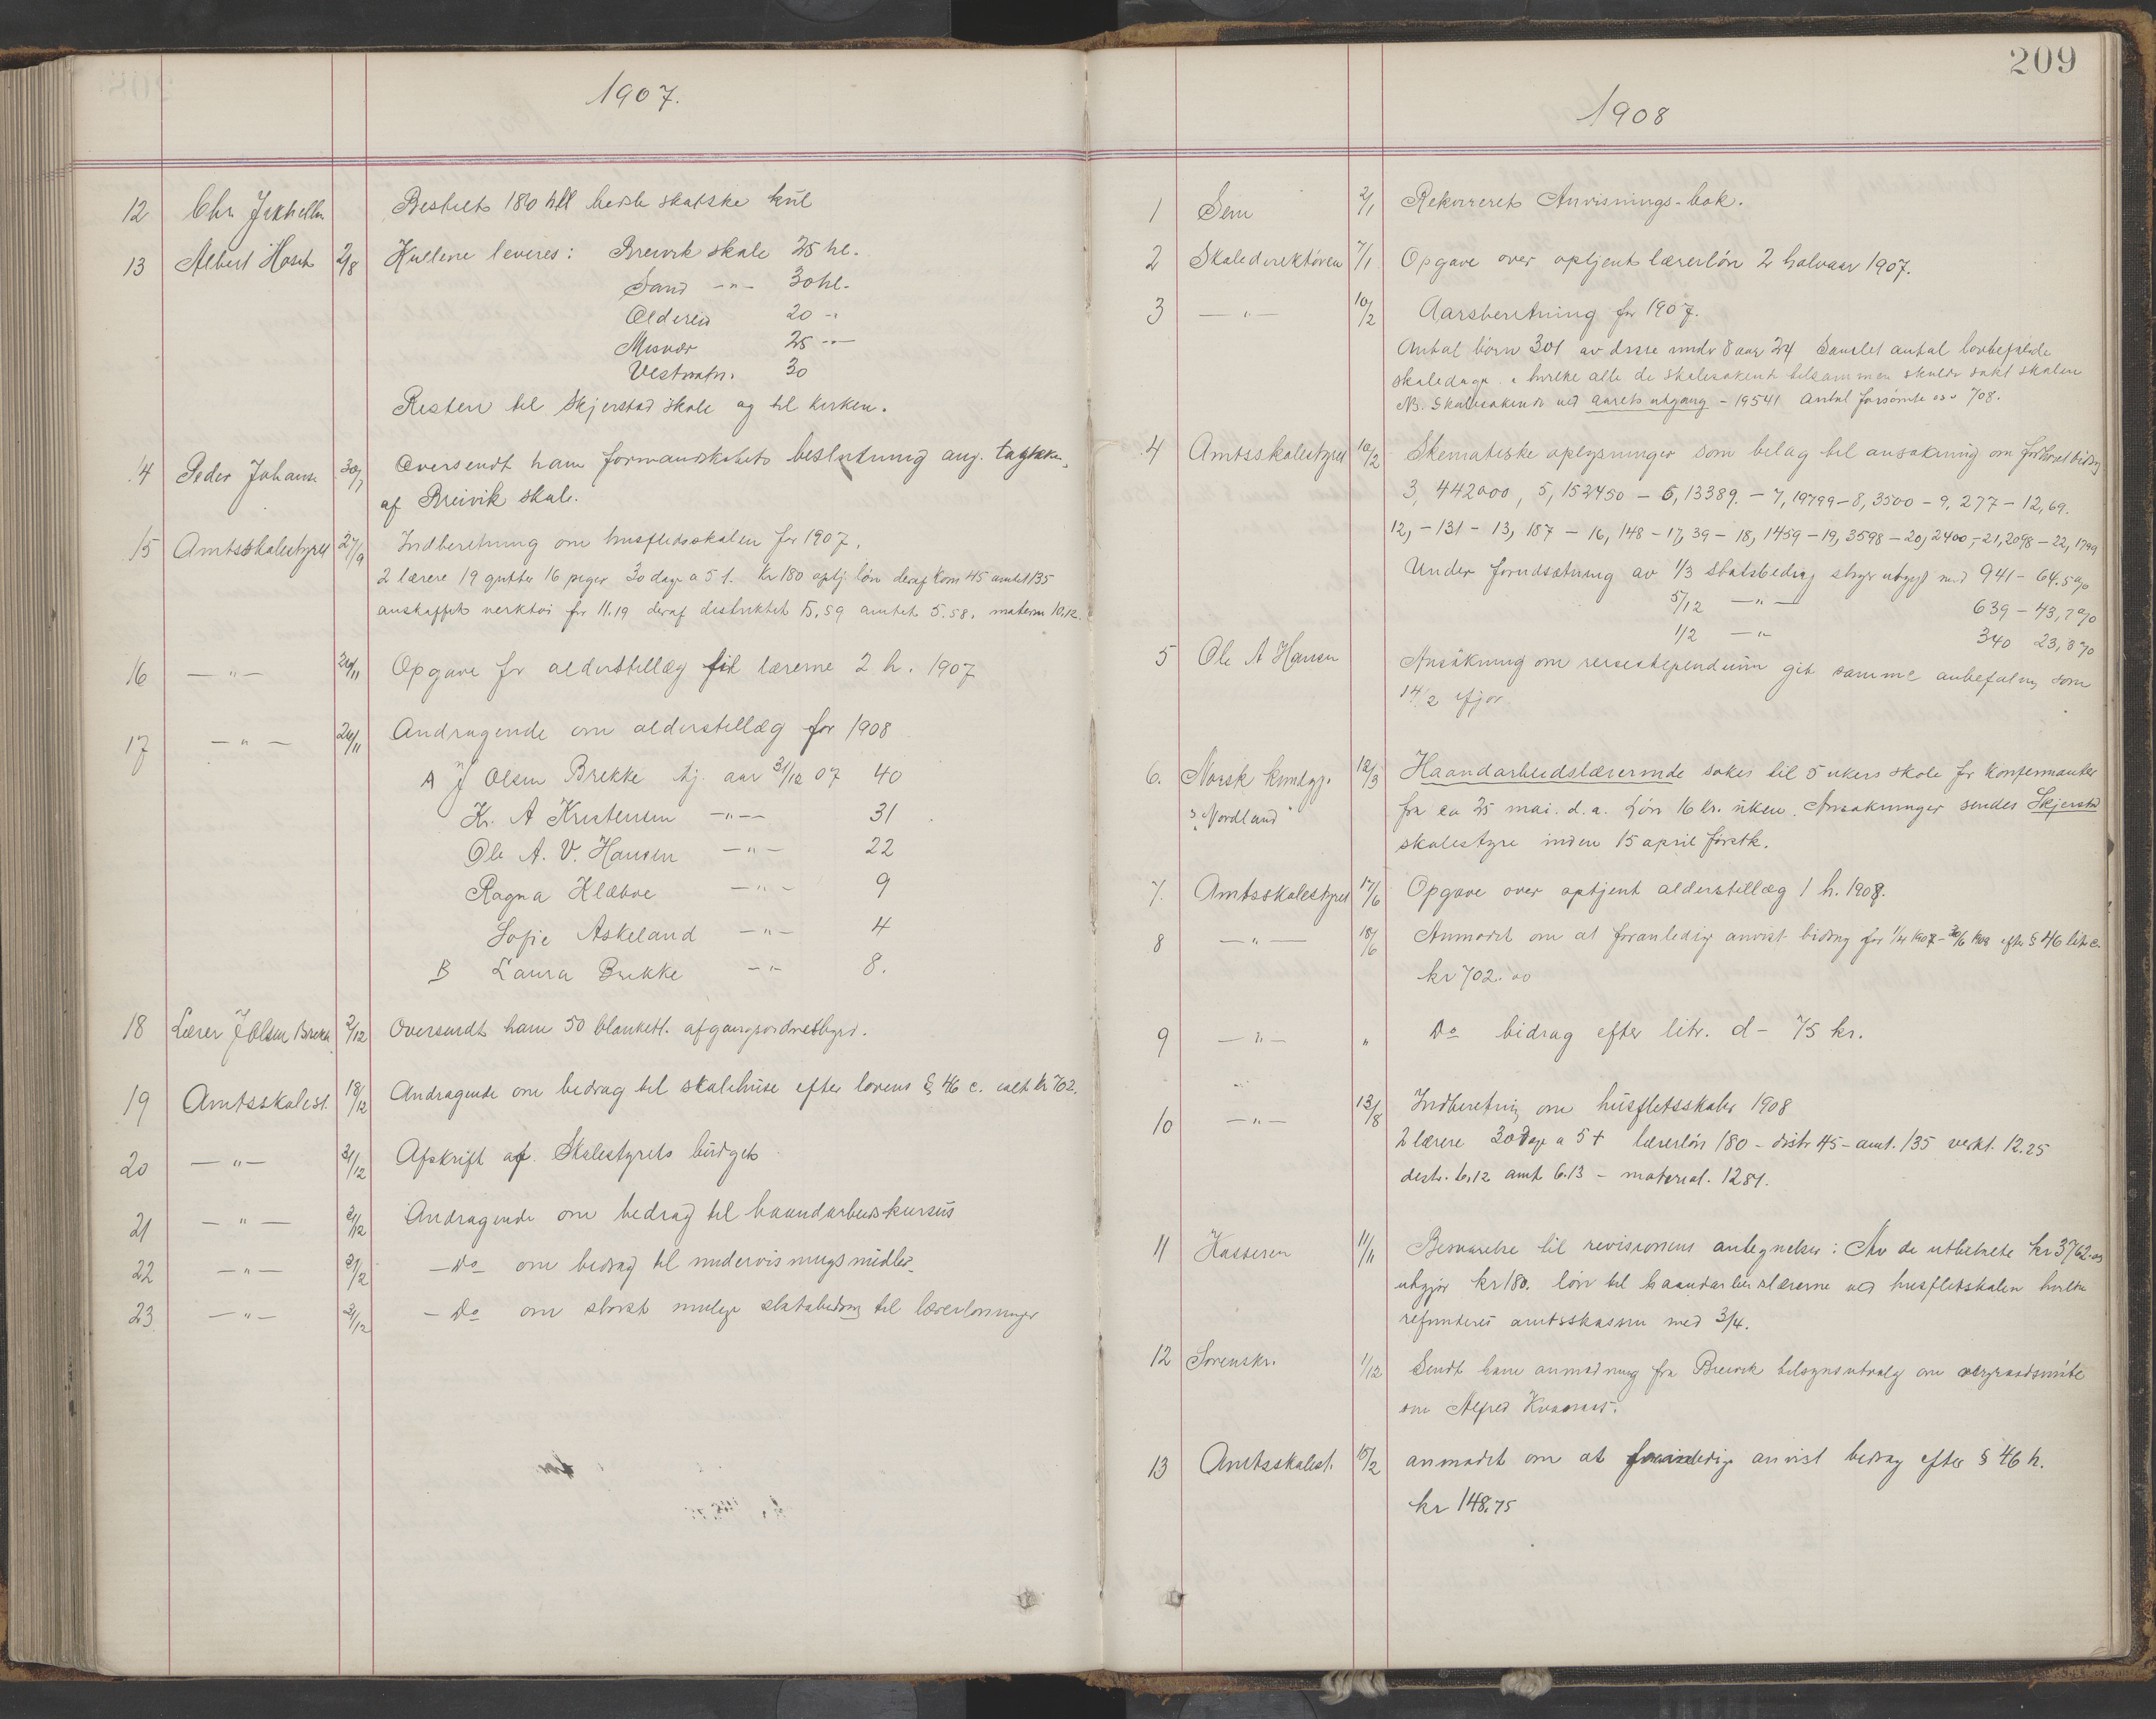 1907.
12 Chr. Bestilt 180 hll bedste skotske kul
13 Albert Hosch 2/8 Kullene leveres: Breivik skole 25 hl.
Sand -"- 30 hl.
Oldereid 20 -"
Misvær 25 -"-
Vestvatn. 30
Resten til Skjerstad skole og til kirken.
14 Peder Johans 30/7 Oversendt ham formandskabets beslutning ang.
af Breivik skole.
15 Amtsskolestyret 27/9 Indberetning om husflidsskolen for 1907.
2 lærere 19 gutter 16 piger 30 dage a 5 t. Kr 180 optj. løn deraf kom 45 amtet 135
anskaffet verktøi for 11.19 deraf distriktet 5,59 amtet 5.58. 10.12.
16 — " — 26/11 Opgave for alderstillæg til lærerne 2 h. 1907
17 — " — 26/11 Andragende om alderstillæg for 1908
A J Olsen Brekke tj. aar 31/12 07 40
Kr. A Kristensen -"- 31
Ole A. V. Hansen —"— 22
Ragna Klæboe —"— 9
Sofie Askeland —"— 4
B Laura Brekke -"- 8.
18 Lærer J Olsen Brekke 2/12 Oversendt ham 50 blankett.
19 Amtsskolest. 18/12 Andragende om bidrag til skolehuse efter lovens § 46 c. ialt kr 702.
20 — " — 21/12 Afskrift af Skolestyrets budget
21 — " — 21/12 Andragende om bidrag til haandarbeidskursus
22 — " — 21/12 — Do om bidrag til undervisningsmidler
23 — " — 21/12 — Do om størst mulige statsbidrag til lærerlønninger
209
1908
1 Sem 2/1 Rekvireret Anvisnings-bok.
2 Skoledirektøren 7/1 Opgave over optjent lærerløn 2 halvaar 1907.
3 — " — 10/2 Aarsberetning for 1907.
Antal børn 301 av disse under 8 aar 24 Samlet antal lovbefalede
skoledage i hvilke alle de skolesøkende tilsammen skulde søkt skolen
NB. Skolesøkende ved aarets utgang - 19541 Antal forsømte 708.
4 Amtsskolestyret 10/2 Skematiske oplysninger som bilag til ansøkning om
3, 442000, 5, 152450 — 6, 13389. — 7, 19799 — 8, 3500 — 9, 277 — 12, 69.
12, — 131 — 13, 187 — 16, 148 — 17, 39 — 18, 1459 — 19, 3598 — 20, 2400 — 21, 2098 — 22, 1799
Under forudsætning av 1/3 statsbidrag med 941 — 64.5 %
5/12 —"— 639 — 43,7 %
1/2 —"— 340 23,3 %
5 Ole A Hansen Ansøkning om reisestipendium git samme anbefaling som
14/2 ifjor
6. Norsk kundgj. 12/3 Haandarbeidslærerinde søkes til 5 ukers skole for konfirmanter
"Nordland" fra ca 25 mai. d. a. Løn 16 kr. uken. Ansøkninger sendes Skjerstad
skolestyre inden 15 april førstk.
7. Amtsskolestyret 17/6 Opgave over optjent alderstillæg 1 h. 1908.
8 — " — 18/6 Anmodet om at foranledige anvist bidrag for 1/4 1907 - 30/6 1908 efter § 46 litr c.
kr 702.00
9 — " — " Do bidrag efter litr. d — 75 kr.
10 — " — 13/8 Indberetning om husflidsskoler 1908
2 lærere 30 dage a 5 t lærerløn 180 — distr 45 — amt. 135 verkt. 12.25
distr. 6.12 amt 6.13 — material. 1281.
11 Kasseren 11/11 Besvarelse til revisionens antegnelser: Av de utbetalte
utgjør kr 180. løn til haandarbeidslærerne ved husflidskolen hvilke
refunderes amtsskassen med 3/4.
12 Sorenskr. 1/12 Sendt ham anmodning fra Breivik tilsynsutvalg om vergeraadsmøte
om Alfred
13 Amtsskolest. 15/12 anmodet om at foranledige anvist bidrag efter § 46 h.
kr 148.75